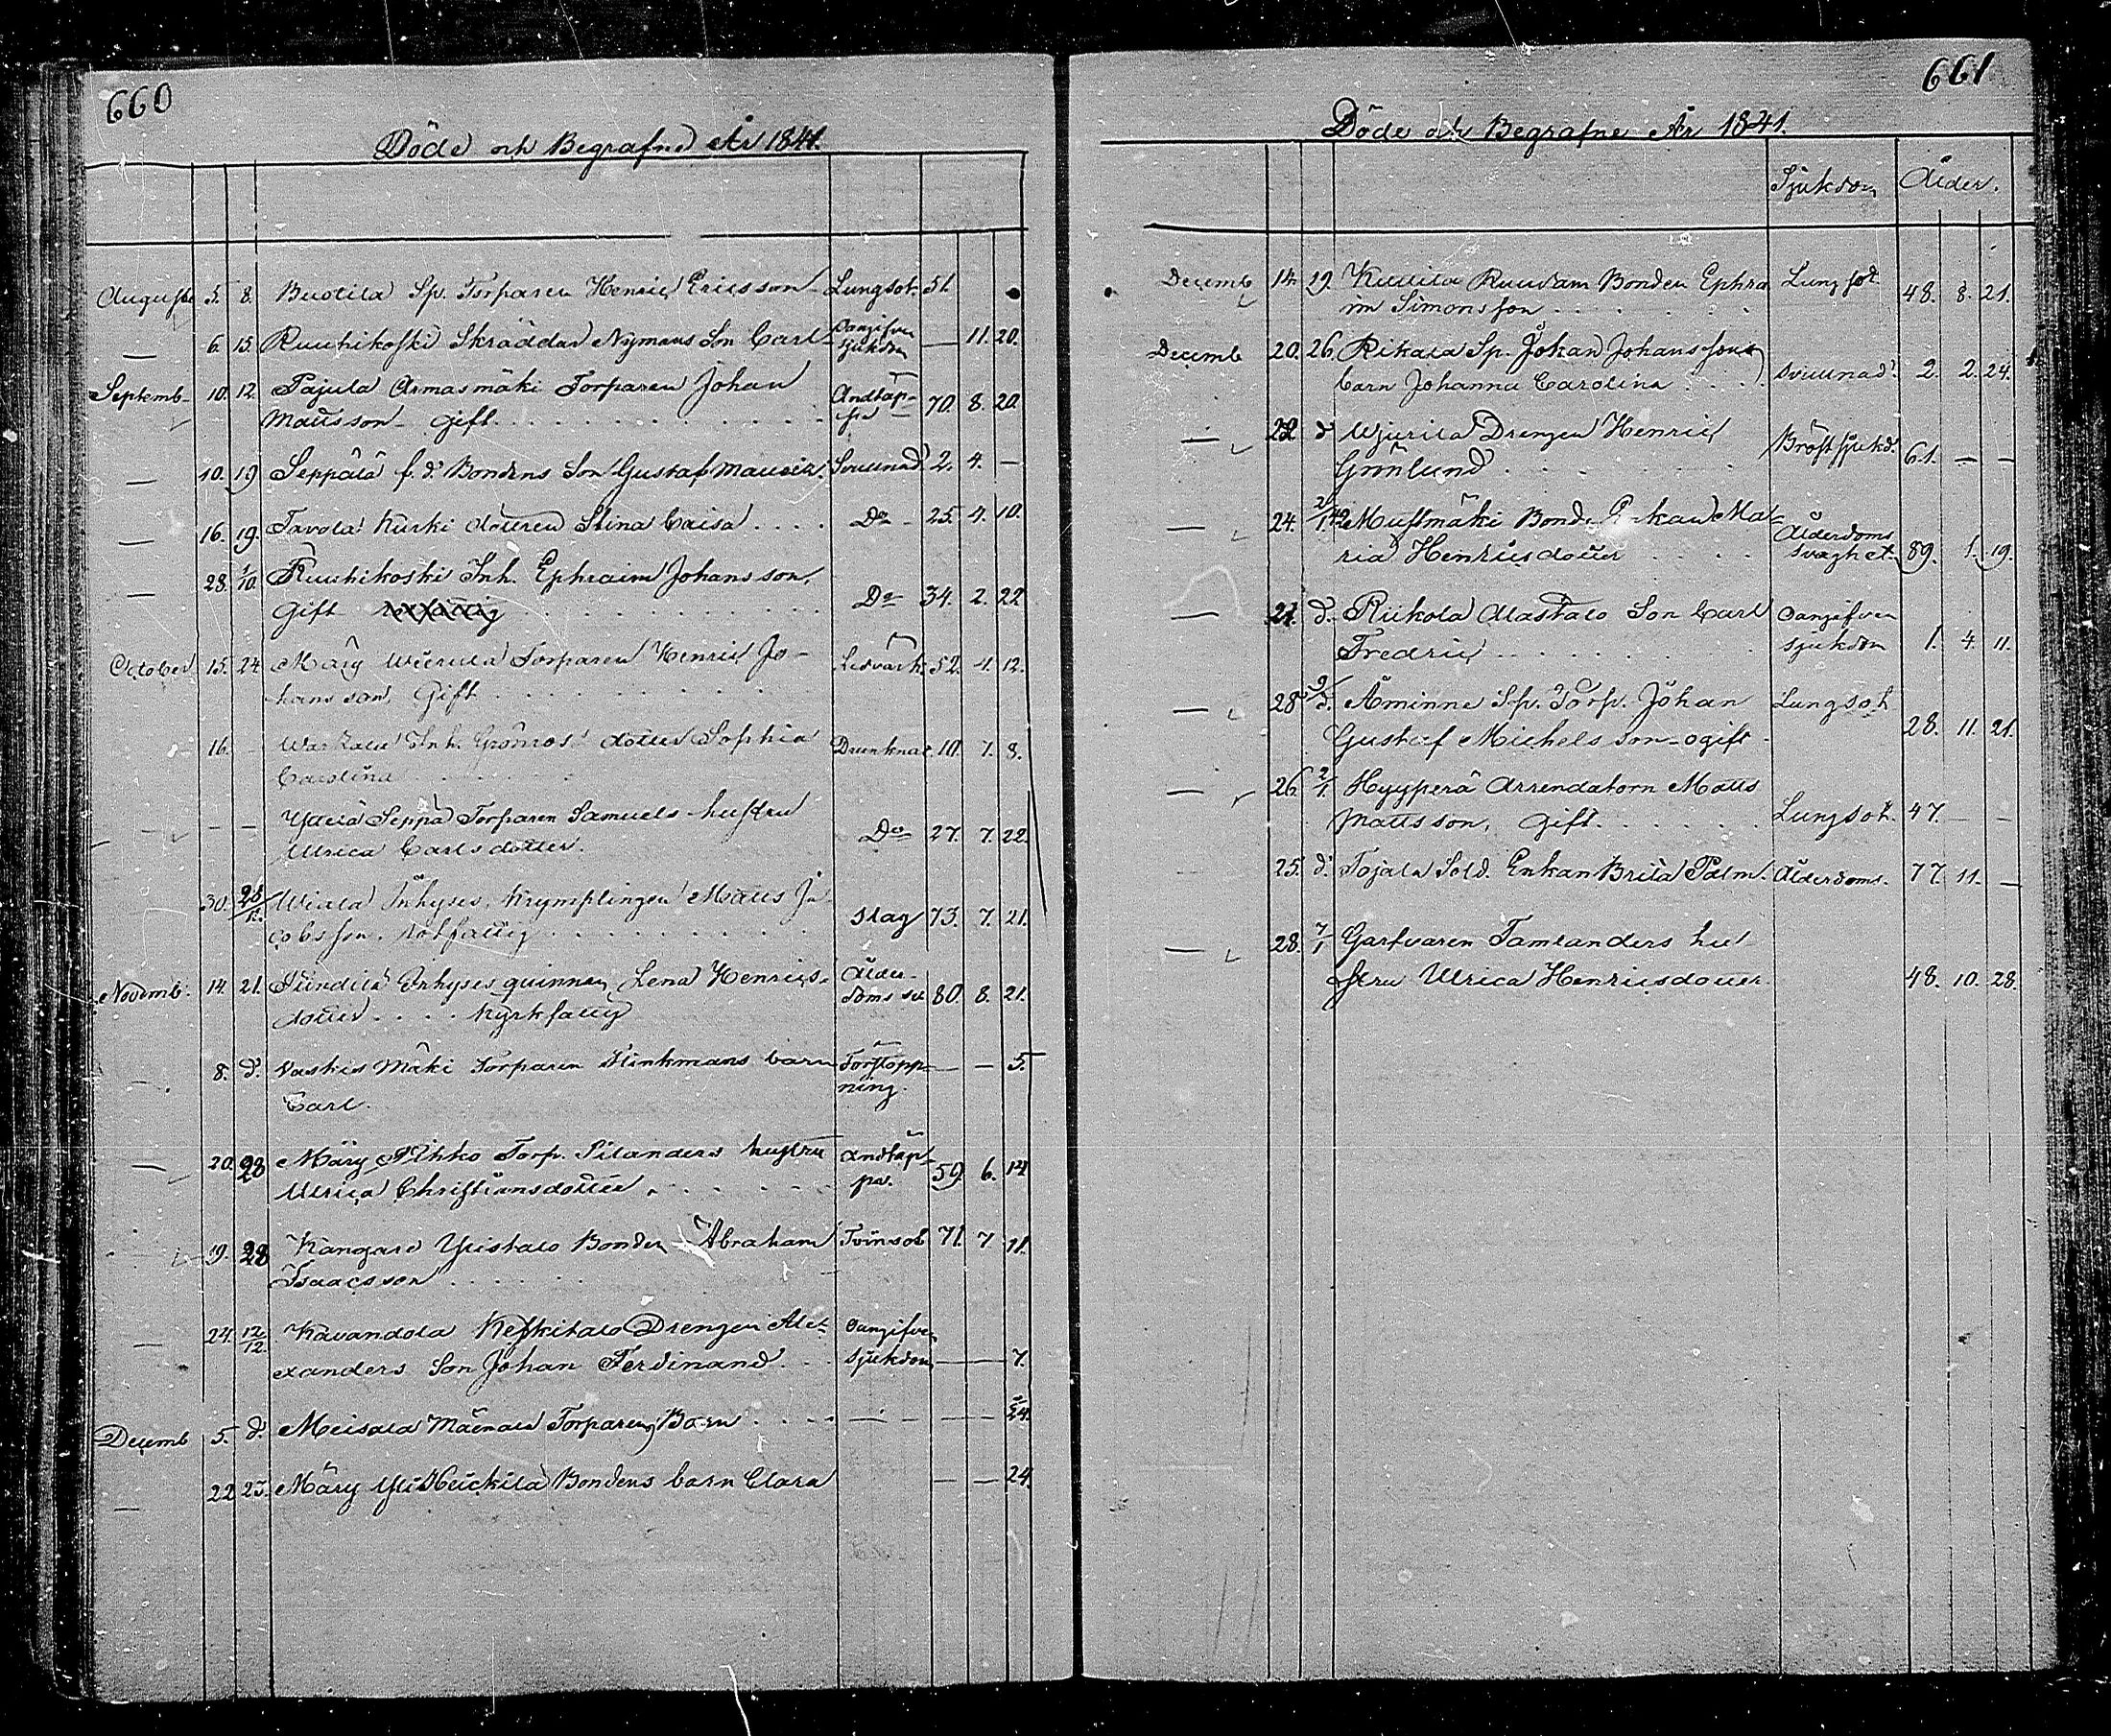 660
Döde och Begrafne År 1841.
Augusti 5. 8. Buotila Sp. Torparen Henric Ericsson Lungsot. 51.
— 6. 15. Ruuhikoski Skräddar Nymans Son Carl Oangifven sjukdom — 11. 20.
Septemb. 10. 12. Pajula Armasmäki Torparen Johan Andtäp-
Mattsson gift. pa 70. 8. 20.
— 10. 19 Seppälä f. d. Bondens Son Gustaf Svullnad 2. 4. —
— 16. 19. Tavola Kurki dottren Stina Caisa Do 25. 4. 10.
— 28. 1/10. Ruuhikoski Inh. Ephraim Johansson,
Gift Do 34. 2. 22
October 15. 24. Märy Torparen Henric Jo-
hansson, Gift Ledvärk. 52. 1. 12.
16. – Inh. Grönros dotter Sophia Drunknat. 10. 7. 8.
Carolina
— – – Seppä Torparen Samuels hustru
Ulrica Carlsdotter. Do 27. 7. 22.
30. Inhyses Krymplingen Matts Ja-
cobsson. rotfattig slag 73. 7. 21.
Novemb. 14. 21. Inhyses quinnan Lena Henrics- Ålder-
dotter Kyrkfattig doms sv. 80. 8. 21.
— 8. d. Vaskis Mäki Torparen Flinkmans barn Förstopp-
Carl. ning. — — 5.
— 20. 28 Märy Torp. Silanders hustru Andtäp-
Ulrica Christiansdotter. pa. 59. 6. 14
19. 28 Kangare Ylistalo Bonden Abraham Tvinsot 71. 7 11.
Isaacsson
— 24. 12/12. Kavandola Keskitalo Drengen Alex- Oangifven
exanders Son Johan Ferdinand sjukdom — — 7.
Decemb 5. d. Meisala Torparens Barn — — —
— 22 25. Märy Yli Heickilä Bondens barn Clara — — 24.
661
Döde och Begrafne År 1841.
Sjukdom Ålder.
Decemb 14. 19. Bonden Ephra Lungsot.
im Simonsson 48. 8. 21.
Decemb 20. 26. Rikala Sp. Johan Johanssons
barn Johanna Carolina Svullnad. 2. 2. 24.
— 22 d Drengen Henric Bröstsjukd.
Grönlund 61. — —
— 24. 2/1. 42 Mustmäki Bond. Enkan Ma- Ålderdoms
ria Henricsdotter svaghet. 89. 1. 19.
— 21. d. Riikola Alastalo Son Carl Oangifven
Fredric sjukdom 1. 4. 11.
— 28 Åminne Sp. Torp. Johan Lungsot
Gustaf Michelsson ogift 28. 11. 21.
— 26. 2/1. Hyyperä Arrendatorn Matts
Mattsson, Gift. Lungsot. 47. — —
25. d. Tojala Sold. Enkan Brita Palm. Ålderdoms. 77. 11. —
— 28. 7/1 Garfvaren Tamlanders hu-
stru Ulrica Henricsdotter. 48. 10. 28.